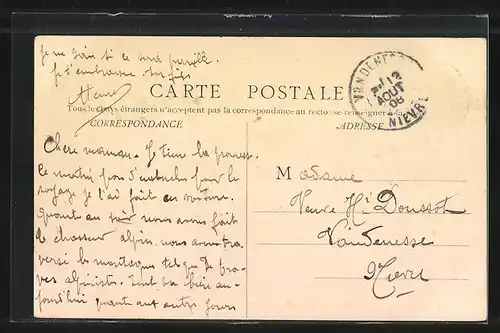 je ne sais si ce sera pareille.
Je t'embrasse
CARTE POSTALE
Tous les pays étrangers n'acceptent pas la correspondance au recto se renseigner à la
CORRESPONDANCE
ADRESSE
VANDENESSE
12
AOUT
08
NIEVRE
Chère maman. Je tiens la promesse.
Ce matin pour le
voyage je l'ai fait en voiture.
Quant au nous avons fait
le chasseur alpin, nous avons tra
versé les montagnes tel que de bra
ves alpinistes. Tout va bien au-
jourd'hui quant aux autres jours
Madame
Veuve Hi Doussot
Vandenesse
Nièvre